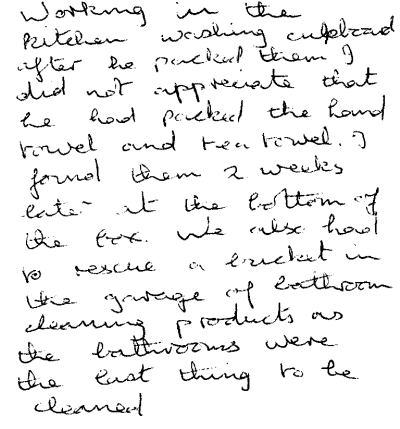 Working in the
kitchen washing cupboard
after he packed them I
did not appreciate that
he had packed the hand
towel and tea towel. I
found them 2 weeks
later at the bottom of
the box. We also had
to rescue a bucket in
the garage of bathroom
cleaning products as
the bathrooms were
the last thing to be
cleaned